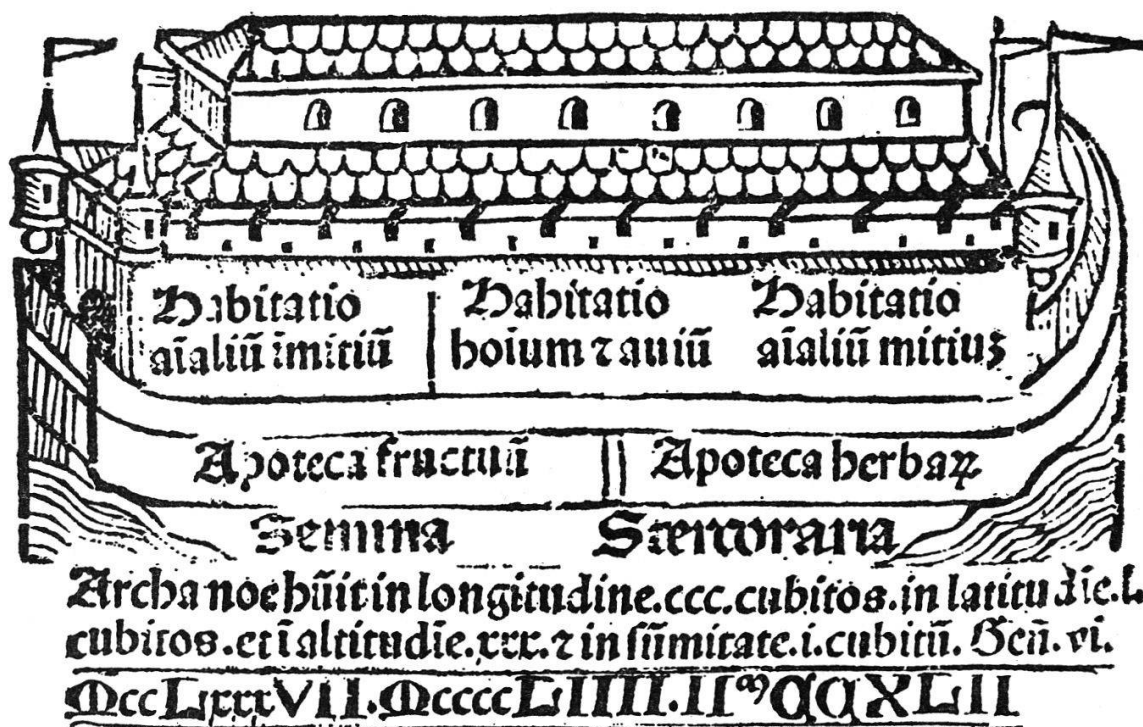 Habitatio
aīaliū īmitiū
Habitatio
hoium ⁊ auiū
Habitatio
aīaliū mitiuꝫ
Apoteca fructuū
Apoteca herbaꝝ
Semina
Stercoraria
Archa noe hūit in longitudine.ccc.cubitos.in latitudīe.l.
cubitos.et ī altitudīe.xxx.⁊ in sūmitate.i.cubitū. Geñ.vi.
MccLxxxVII.MccccLIIII.IIᵐ CCXLII